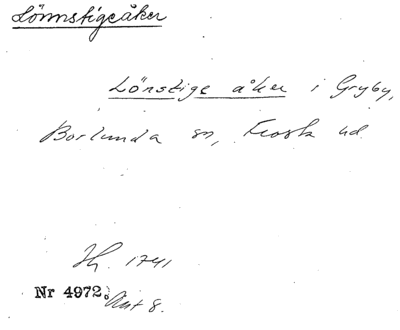 Lönnstigeåker
Lönstige åker i Gryby,
Borlunda sn, Frosta hd
Hg. 1741
Nr 4972. Akt 8.